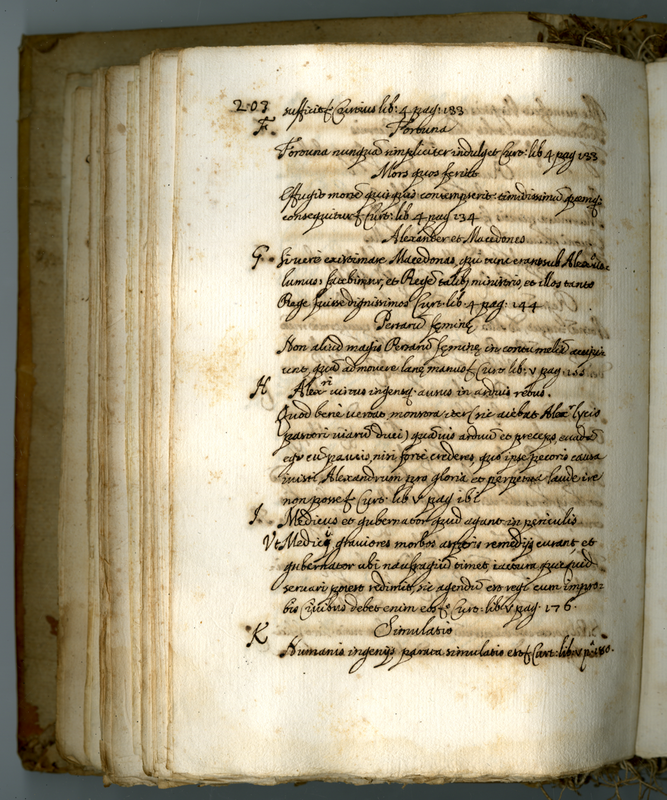 203 sufficit Curtius lib: 4 pag: 133
F. Fortuna
Fortuna nunquã simpliciter indulget Curt: lib 4 pag 133
Mors quos ferit
Effugit mortẽ quisquis contempserit timidissimũ quemq;
consequitur Curt: lib 4 pag 134
Alexander et Macedones
G. Si vere existimare Macedonas, qui tunc erant sub Alex: vo-
lumus: fatebimur, et Regẽ talib; ministris, et illos tanto
Rege fuisse dignissimos Curt: lib: 4 pag: 144
Persarũ fęminę
Non aliud magis Persarũ fęminę in contumeliã accipi
unt, quã admovere lanę manus Curt: lib: v pag:
H Alexri virtus ingensq. aurus in arduis rebus.
Quod bene vertat monstra iter (sic aiebat Alexr Lycio
pastori viarũ duci) quãvis arduũ et pręceps, evadã
ego eũ paucis, nisi forte crederes, quo ipse pecoris causa
isti, Alexandrum pro gloria et perpetua laude ire
non posse Curt: lib v pag
I. Medicus et gubernator quid agant in periculis
Vt Medici graviores morbos asperis remedijs curant et
gubernator ubi naufragiũ timet, iactura quidquid
servari potest redimit, sic agendũ est regi cum impro-
bis Civibus debet enim Curt: lib: v pag: 176.
K Simulatio
Humanis ingenijs parata simulatio est Curt: lib: v pa: 180.